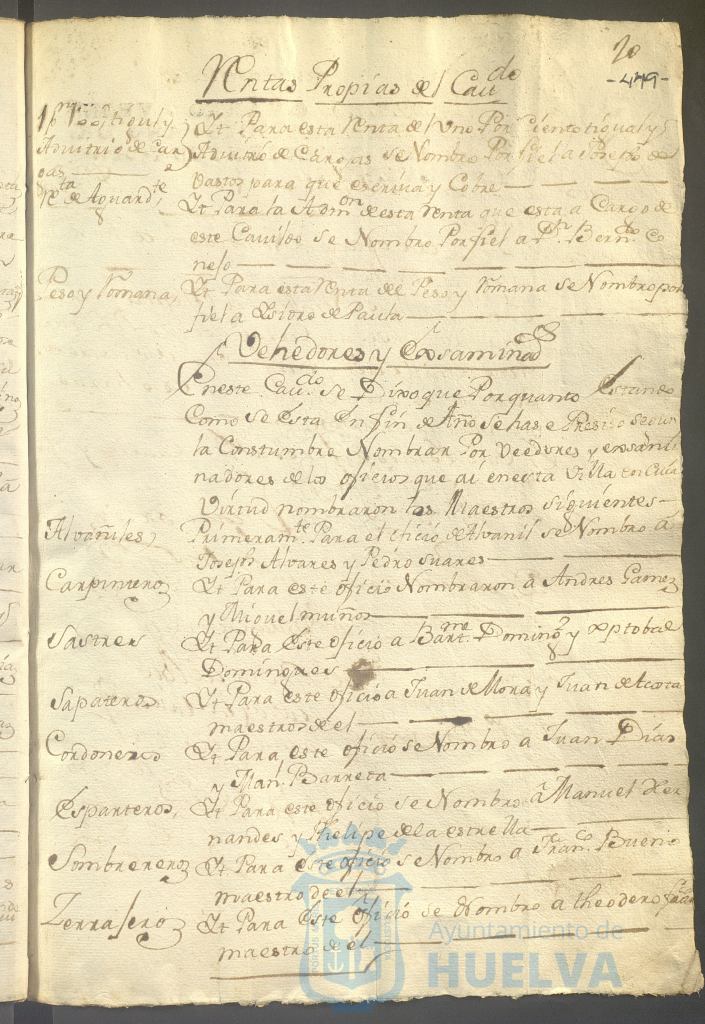 20
-449-
Rentas Propias del Cav.do
1 p.r 100 tigual y
Aduitrio de Car
gas
Yt Para esta Renta del Uno Por Ciento tigual y
Aduitro de Cargas se Nombro Por fiel a Joseph de
Bastos para que escriva y Cobre
R.ta de Aguard.te
Yt Para la Adm.on de esta Renta que esta a Cargo de
este Cavildo se Nombro Por fiel a D.n Bern.do Co
nejo
Peso y Romana,
Yt Para esta Renta del Peso y Romana se Nombro por
fiel a Isidro de Paula
Vehedores y Exsaminad.s
En este Cav.do se Dixo que Por quanto Estando
Como se Esta En fin de Año se hase Presiso segun
la Constumbre Nombrar Por Veedores y exsami
nadores de los oficios que ai en esta Villa en Cuia
Virtud nombraron los Maestros siguientes
Alvañiles,
Primeram.te Para el oficio de Alvañil se Nombro a
Joseph Alvares y Pedro Suares
Carpinteros
Yt Para este oficio Nombraron a Andres Gomez
y Miguel muños
Sastres
Yt Para Este oficio a Bart.me Doming.z y xptobal
Domingues
Sapateros
Yt Para este oficio a Juan de Mora y Juan de Acosta
maestros de el
Cordoneros
Yt Para este oficio se Nombro a Juan Dias
y Man.l Barreta
Esparteros,
Yt Para este oficio se Nombro a Manuel Xer
nandes y Phelipe de la estrella
Sombrereros
Yt Para este oficio se Nombro a Fran.co Bueno
maestro de el
Zerrajeros
Yt Para Este oficio se Nombro a theodoro
maestro de el
Ayuntamiento de
HUELVA